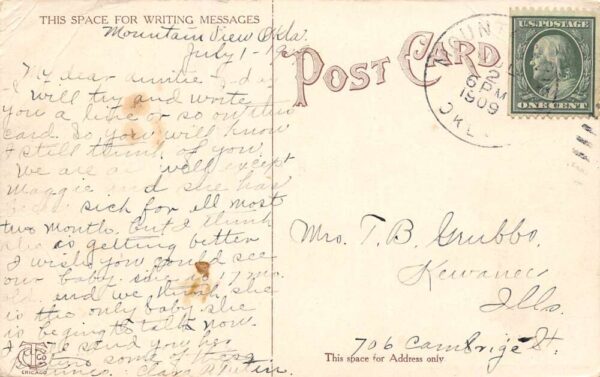 THIS SPACE FOR WRITING MESSAGES
Mountain View Okla.
July 1 - 19
My dear auntie
will try and write
you a line or so on this
card. So you will know
I still think of you.
We are all well except
Maggie and she has
sick for all most
two month. but I think
she is getting better
I wish you could see
our baby. she is 17 mo.
old. and we think she
is the only baby. she
is begining to talk now.
I send you her
some of these
Clara
CHICAGO
POST CARD
MOUNTAIN
2
6 PM
1909
OKLA
U.S. POSTAGE
ONE CENT
Mrs. T. B. Grubbs.
Kewanee
Ills.
706 Cambrige St.
This space for Address only